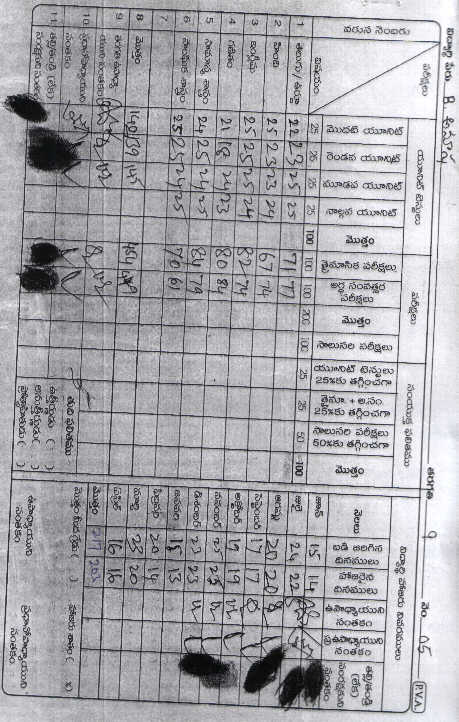 విద్యార్థి పేరు B.
తరగతి 9 నెం. 05 (PVA)
వరుస నెంబరు
పరీక్షలు
విషయం
యూనిట్ టెస్టులు
పరీక్షలు
సంయుక్త ఫలితము
మొదటి యూనిట్
రెండవ యూనిట్
మూడవ యూనిట్
నాల్గవ యూనిట్
మొత్తం
త్రైమాసిక పరీక్షలు
అర్థ సంవత్సర పరీక్షలు
మొత్తం
సాలుసరి పరీక్షలు
యూనిట్ టెస్టులు 25%కు తగ్గించగా
త్రైమా. + అ.సం. 25%కు తగ్గించగా
సాలుసరి పరీక్షలు 50%కు తగ్గించగా
మొత్తం
25 25 25 25 100 100 100 200 100 25 25 50 100
1 తెలుగు / ఉర్దూ 22 23 25 25 71 77
2 హిందీ 25 23 23 24 67 74
3 ఇంగ్లీషు 25 25 25 24 82 74
4 గణితం 21 18 24 23 80 84
5 సామాన్య శాస్త్రం 24 25 24 25 84 79
6 సాంఘిక శాస్త్రం 25 25 24 25 70 61
7
8 మొత్తం 139 145
9 తరగతి ఉపాధ్యాయుని సంతకం
10 ప్రధానోపాధ్యాయుని సంతకం
11 తల్లి/తండ్రి (లేక) సంరక్షకుని సంతకం
తుది ఫలితము
ఉత్తీర్ణుడు ( )
అనుత్తీర్ణుడు ( )
ప్రోత్సాహితుడు ( )
విద్యార్థి హాజరు వివరములు
నెలలు
బడి జరిగిన దినములు
హాజరైన దినములు
ఉపాధ్యాయుని సంతకం
ప్ర.ఉపాధ్యాయుని సంతకం
తల్లి/తండ్రి (లేక) సంరక్షకుని సంతకం
జూన్ 15 14
జూలై 24 22
ఆగష్టు 20 20
సెప్టెంబర్ 17 17
అక్టోబర్ 19 19
నవంబర్ 25 25
డిసెంబర్ 23 23
జనవరి 18 13
ఫిబ్రవరి 20 14
మార్చి 23 20
ఏప్రిల్ 16 16
మొత్తం 217 203
హాజరు శాతం ( )
ఉపాధ్యాయుని సంతకం
ప్రధానోపాధ్యాయుని సంతకం